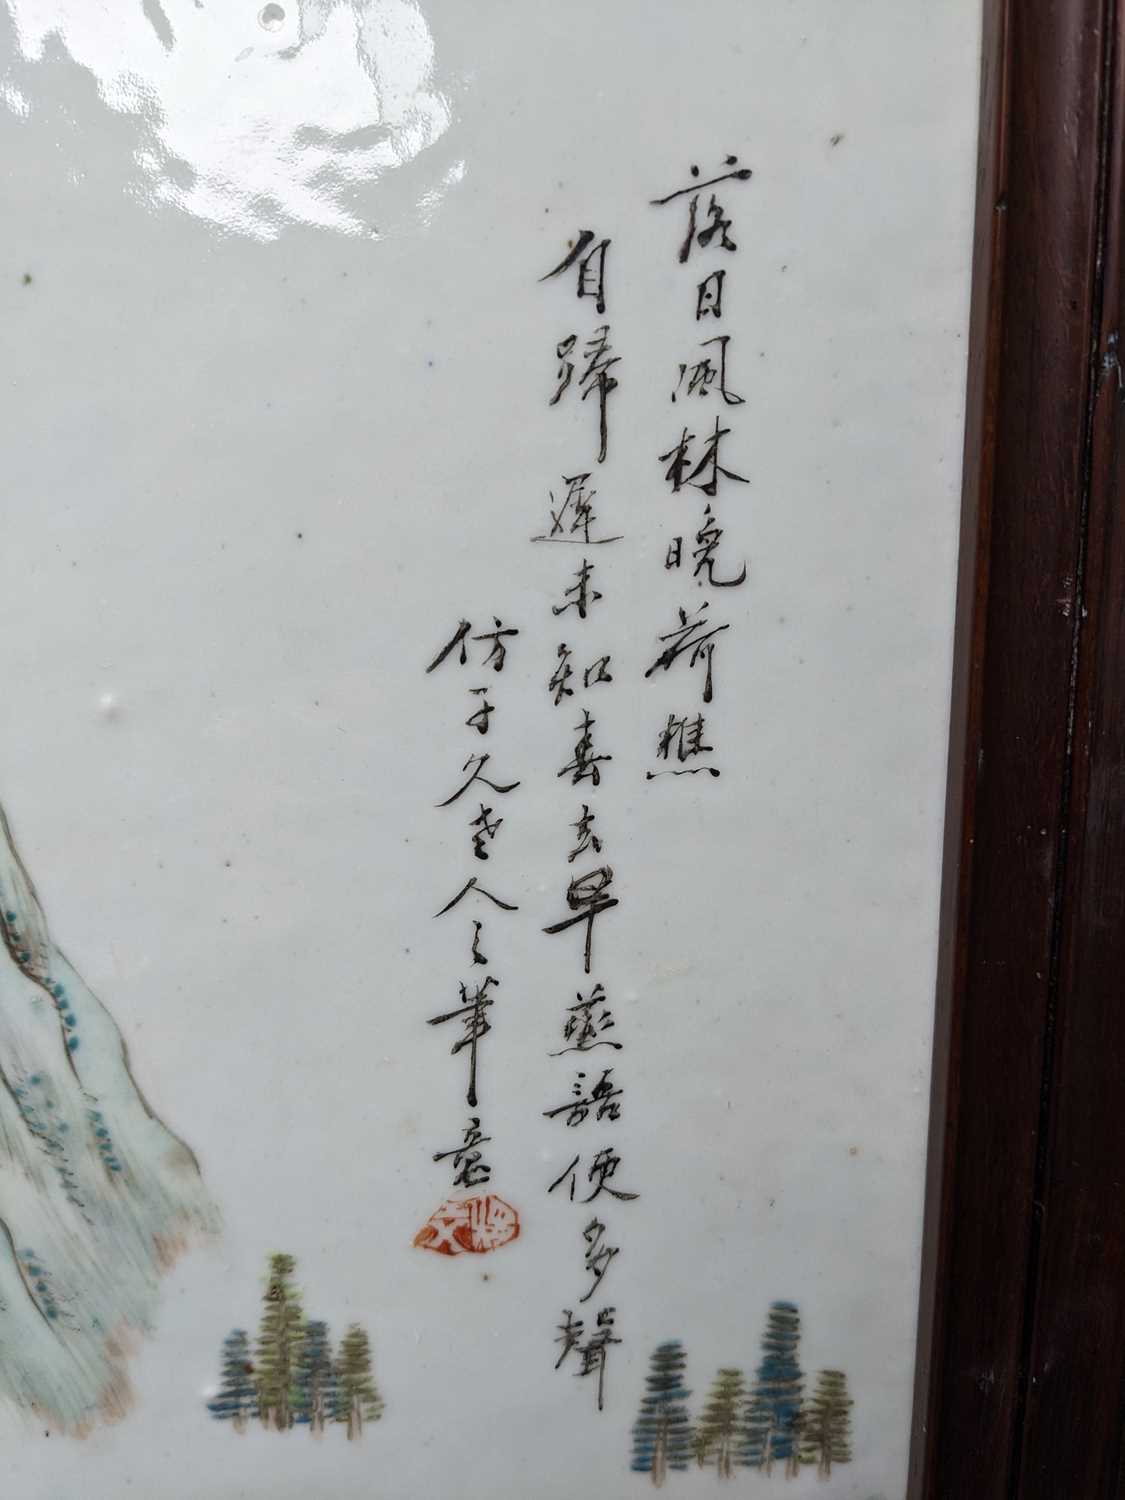 落日風林晚荷樵
自歸遲未知春去早燕語便多聲
仿子久老人之筆意